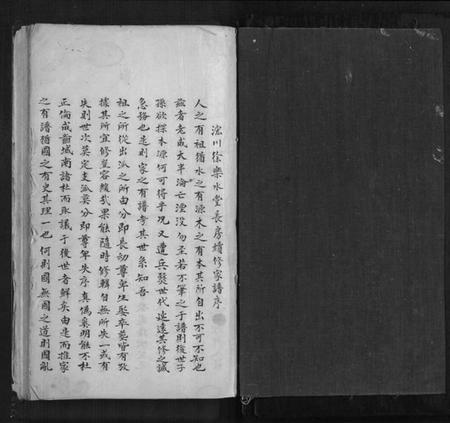 滻川徐樂水堂長房續修家譜序
人之有祖猶水之有源木之有本其所自出不可不知也
茲者老成大半淪亡湮沒勿呈若不筆之于譜則後世子
孫欲探本源何可得乎況又遭兵燹世代迭遠其修之誠
急務也是則家之有譜考其世系知吾
祖之所從出派之所由分即長幼尊卑生壓卒葬皆有攷
據其所宜修葺容緩哉果能隨時修輯自無所失一或有
失則世次莫定支派莫分即尊卑失序真偽莫明能不杜
正倫或齒城南諸杜而永譏于後世者鮮矣由是而推家
之有譜猶國之有史其理一也何則國無國之道則國亂